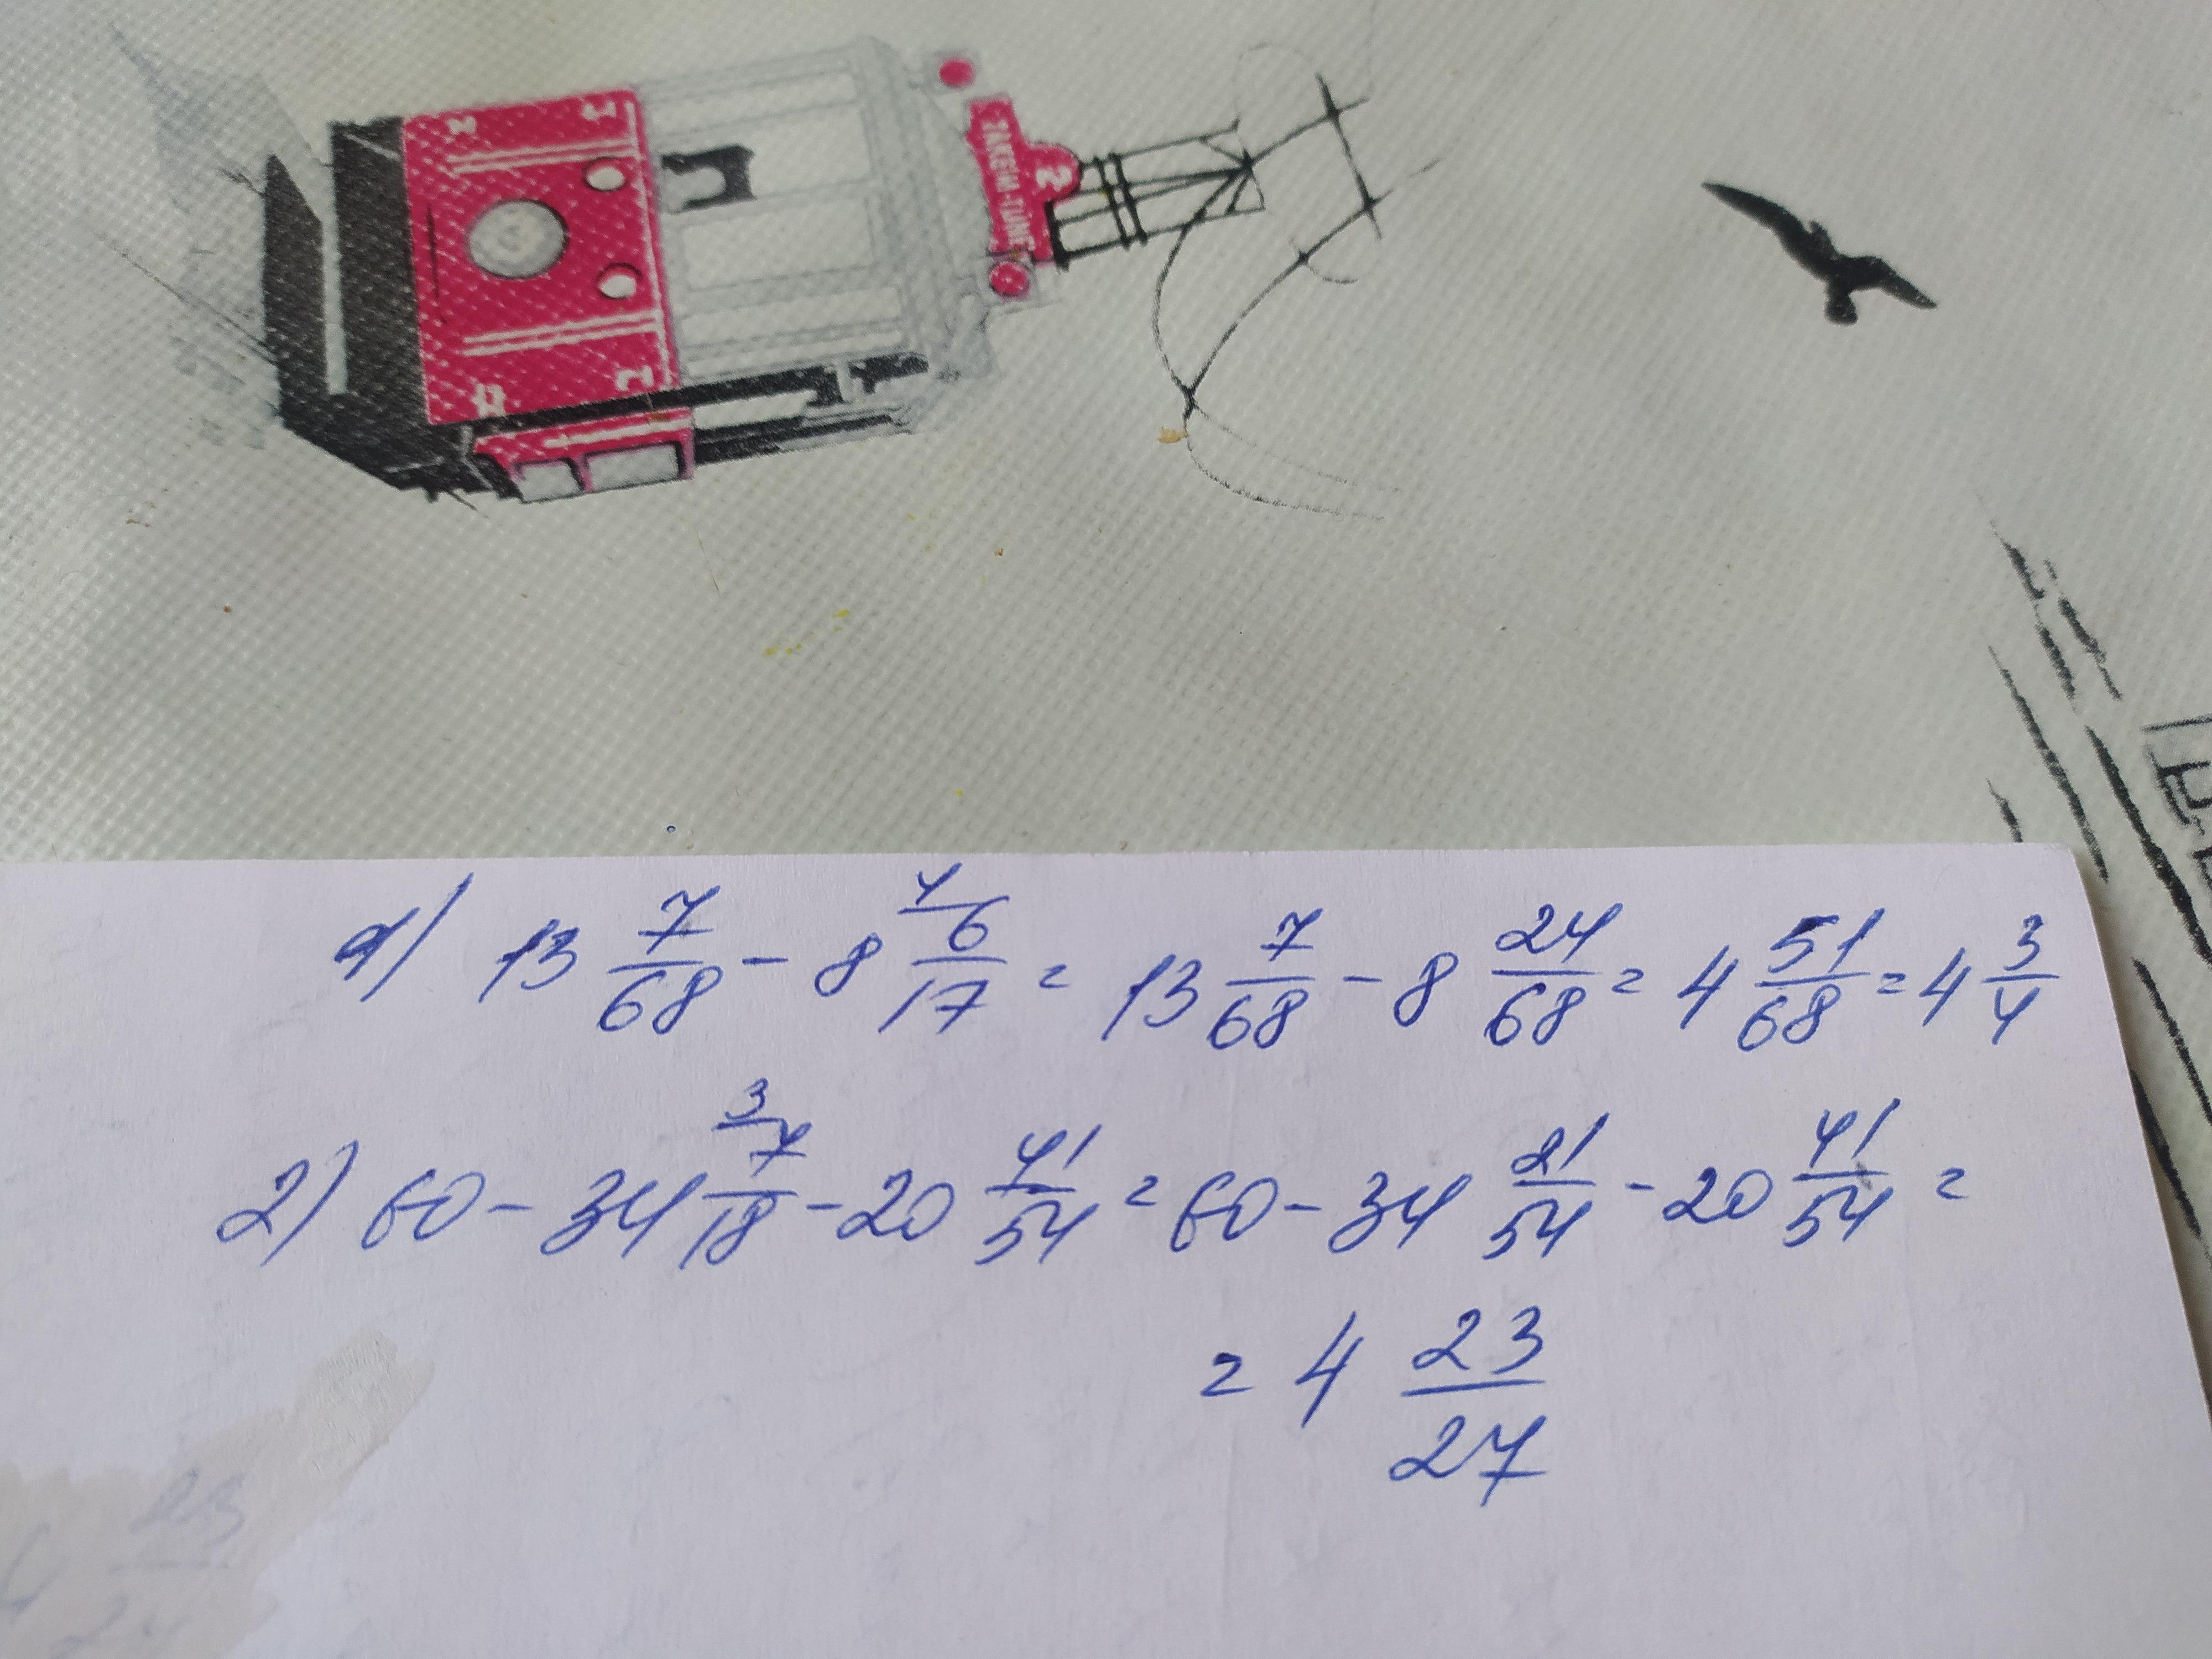 1) 13 7/68 - 8 6/17 (4 = 13 7/68 - 8 24/68 = 4 51/68 = 4 3/4
2) 60 - 34 7/18 (3 - 20 41/54 = 60 - 34 21/54 - 20 41/54 =
= 4 23/27